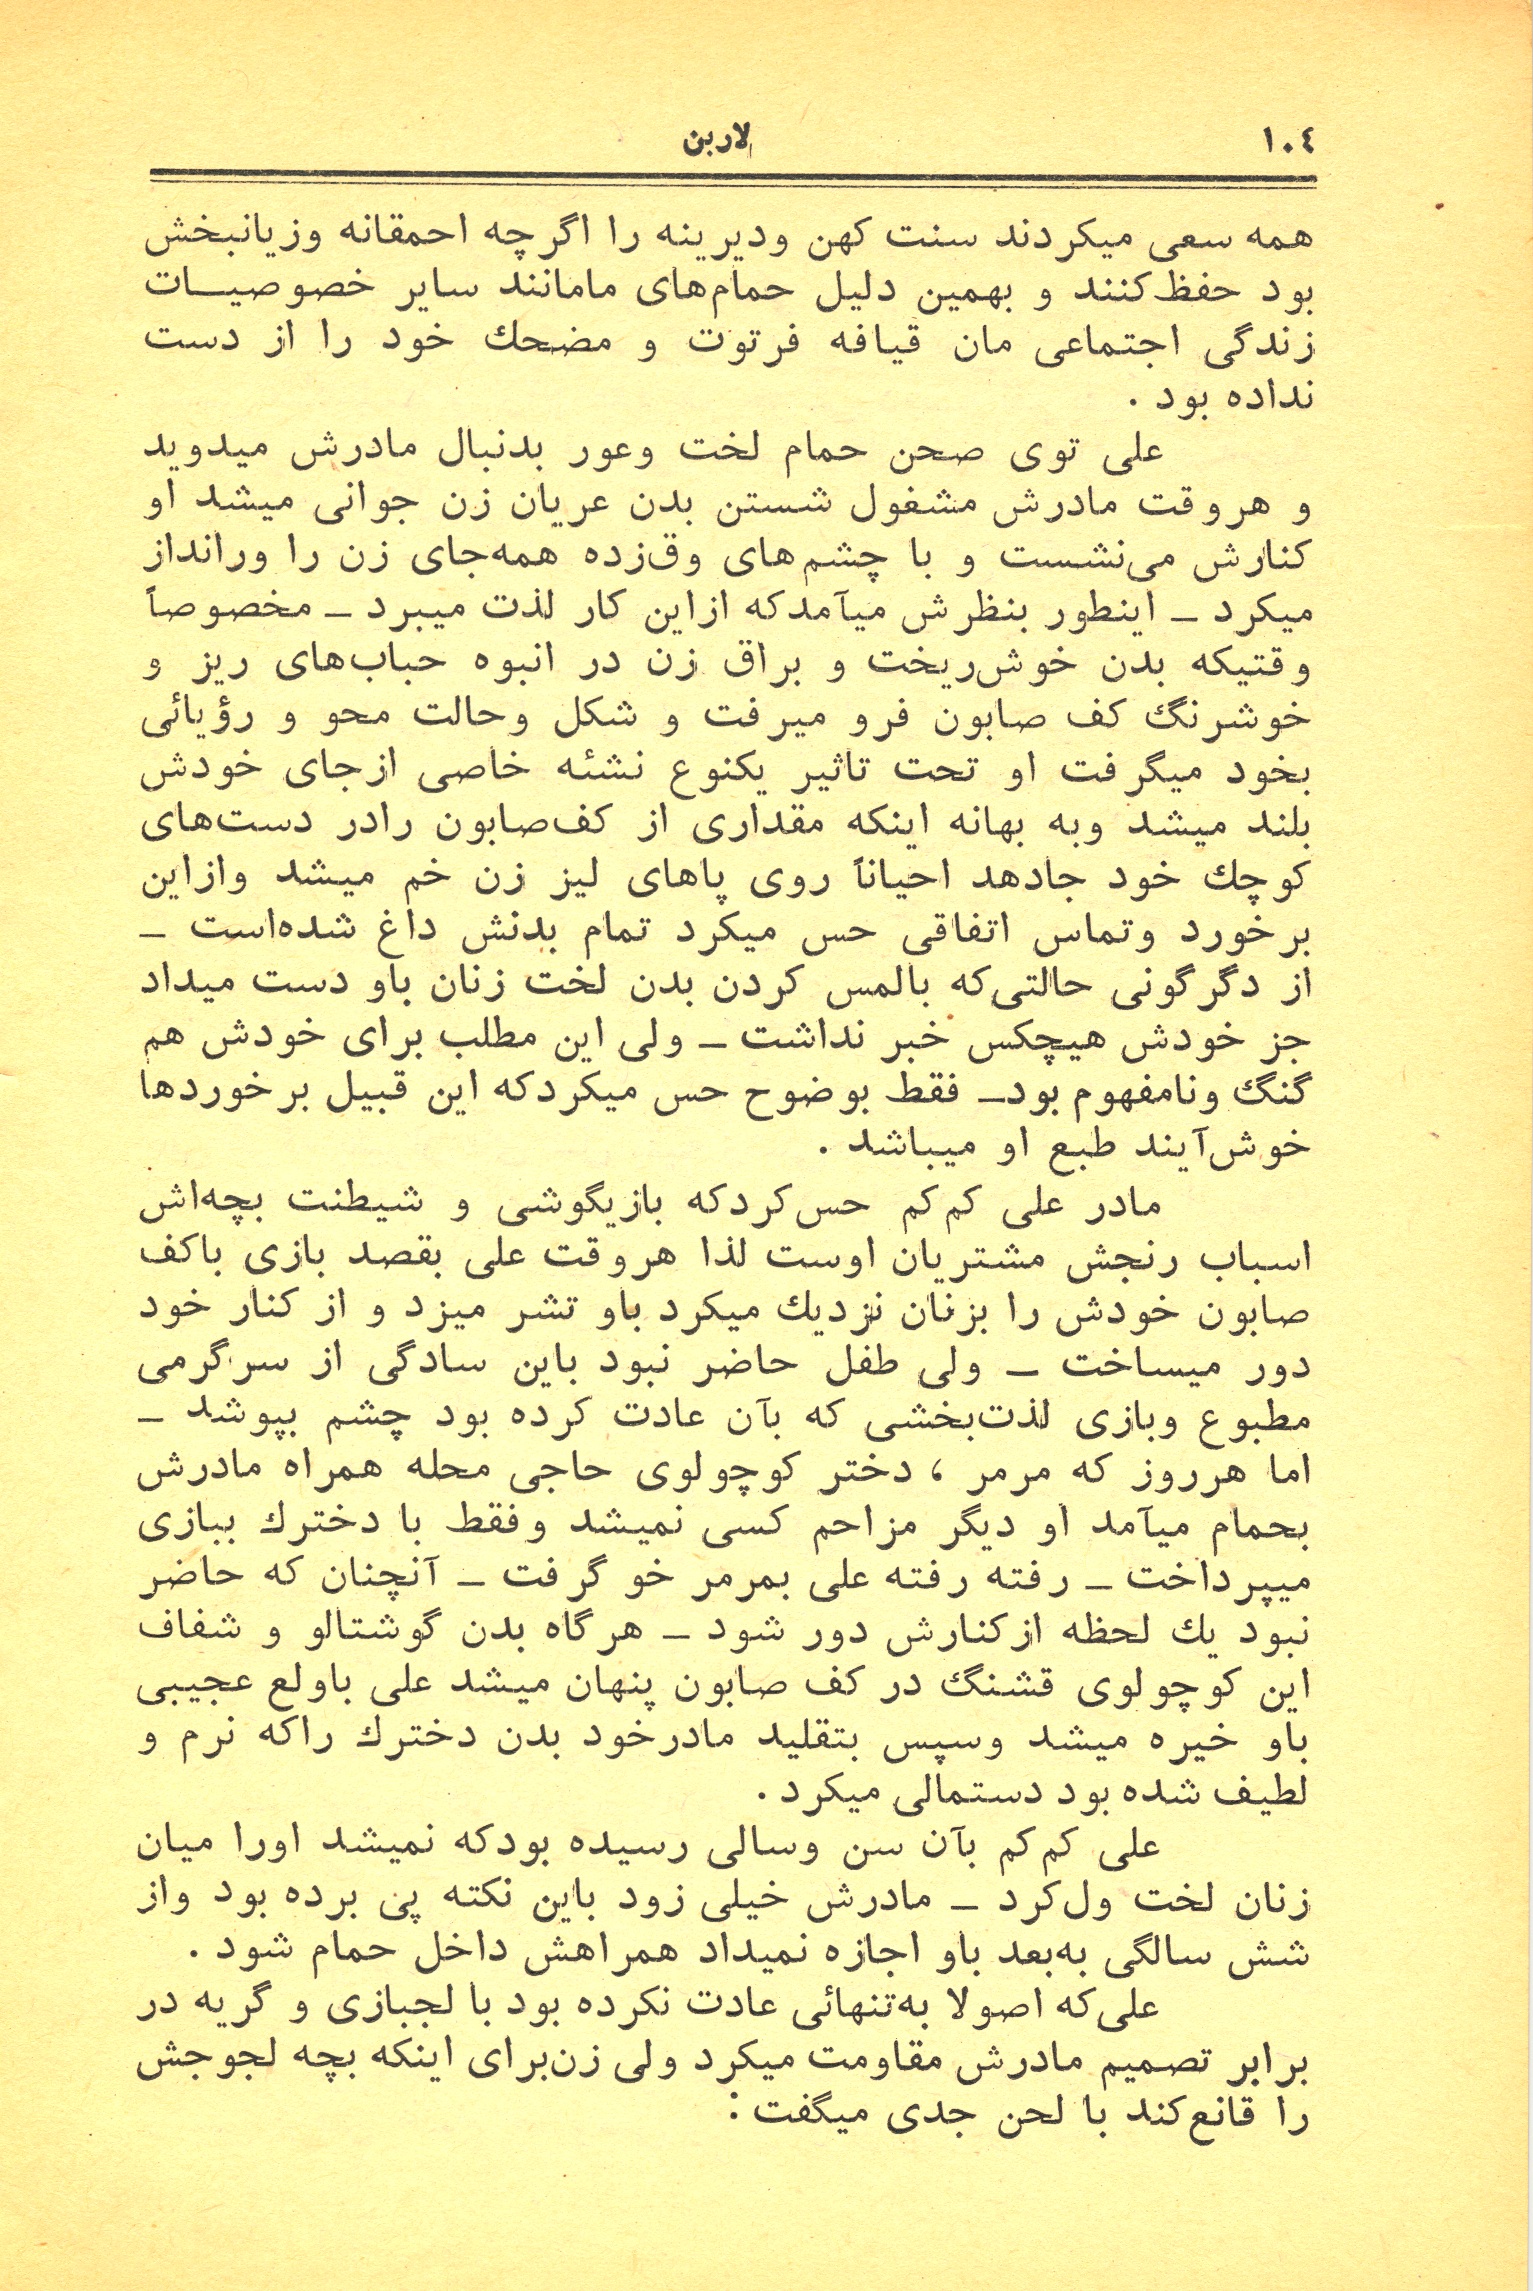 ١٠٤
لاربن
همه سعی میکردند سنت کهن ودیرینه را اگرچه احمقانه وزیانبخش
بود حفظ‌کنند و بهمین دلیل حمام‌های مامانند سایر خصوصیـــات
زندگی اجتماعی مان قیافه فرتوت و مضحك خود را از دست
نداده بود .
علی توی صحن حمام لخت وعور بدنبال مادرش میدوید
و هروقت مادرش مشغول شستن بدن عریان زن جوانی میشد او
کنارش می‌نشست و با چشم‌های وق‌زده همه‌جای زن را ورانداز
میکرد ـ اینطور بنظرش میآمدکه ازاین کار لذت میبرد ـ مخصوصاً
وقتیکه بدن خوش‌ریخت و براق زن در انبوه حباب‌های ریز و
خوشرنگ کف صابون فرو میرفت و شکل وحالت محو و رؤیائی
بخود میگرفت او تحت تاثیر یکنوع نشئه خاصی ازجای خودش
بلند میشد وبه بهانه اینکه مقداری از کف‌صابون رادر دست‌های
کوچك خود جادهد احیاناً روی پاهای لیز زن خم میشد وازاین
برخورد وتماس اتفاقی حس میکرد تمام بدنش داغ شده‌است ـ
از دگرگونی حالتی‌که بالمس کردن بدن لخت زنان باو دست میداد
جز خودش هیچکس خبر نداشت ـ ولی این مطلب برای خودش هم
گنگ ونامفهوم بودـ فقط بوضوح حس میکردکه این قبیل برخوردها
خوش‌آیند طبع او میباشد .
مادر علی کم‌کم حس‌کردکه بازیگوشی و شیطنت بچه‌اش
اسباب رنجش مشتریان اوست لذا هروقت علی بقصد بازی باکف
صابون خودش را بزنان نزدیك میکرد باو تشر میزد و از کنار خود
دور میساخت ـ ولی طفل حاضر نبود باین سادگی از سرگرمی
مطبوع وبازی لذت‌بخشی که بآن عادت کرده بود چشم بپوشد ـ
اما هرروز که مرمر ، دختر کوچولوی حاجی محله همراه مادرش
بحمام میآمد او دیگر مزاحم کسی نمیشد وفقط با دخترك ببازی
میپرداخت ـ رفته رفته علی بمرمر خو گرفت ـ آنچنان که حاضر
نبود یك لحظه ازکنارش دور شود ـ هرگاه بدن گوشتالو و شفاف
این کوچولوی قشنگ در کف صابون پنهان میشد علی باولع عجیبی
باو خیره میشد وسپس بتقلید مادرخود بدن دخترك راکه نرم و
لطیف شده بود دستمالی میکرد .
علی کم‌کم بآن سن وسالی رسیده بودکه نمیشد اورا میان
زنان لخت ول‌کرد ـ مادرش خیلی زود باین نکته پی برده بود واز
شش سالگی به‌بعد باو اجازه نمیداد همراهش داخل حمام شود .
علی‌که اصولا به‌تنهائی عادت نکرده بود با لجبازی و گریه در
برابر تصمیم مادرش مقاومت میکرد ولی زن‌برای اینکه بچه لجوجش
را قانع‌کند با لحن جدی میگفت :